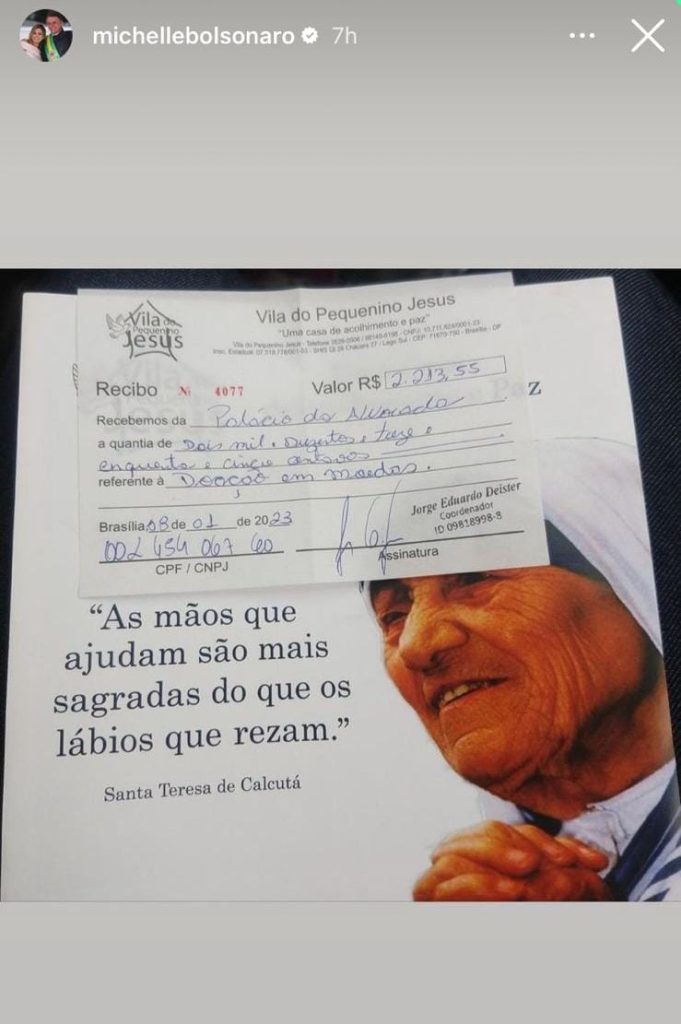 michellebolsonaro 7h
Vila do
Pequenino
Jesus
Vila do Pequenino Jesus
"Uma casa de acolhimento e paz"
Recibo Nº 4077 Valor R$ 2.213,55
Recebemos da Palácio da Alvorada
a quantia de Dois mil. Duzentos e treze e
cinquenta e cinco centavos
referente à Doação em moedas.
Brasília, 08 de 01 de 2023
CPF / CNPJ
Jorge Eduardo Deister
Coordenador
ID 09818998-8
Assinatura
Paz
“As mãos que
ajudam são mais
sagradas do que os
lábios que rezam.”
Santa Teresa de Calcutá